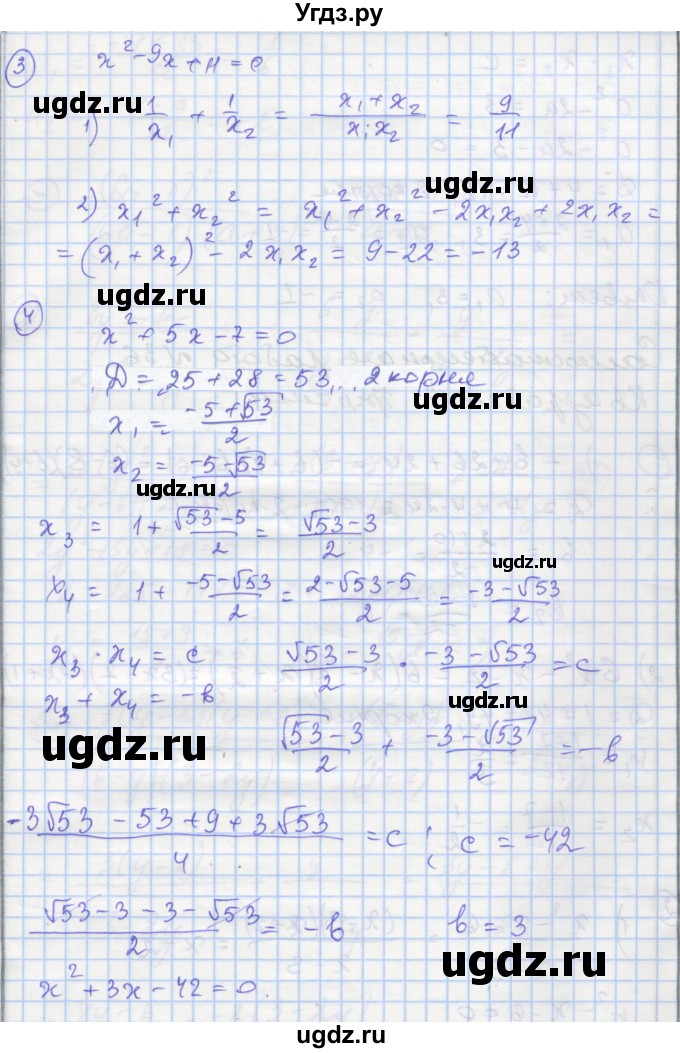 Угдз.ру
3 x² - 9x + 11 = 0
1) 1/x₁ + 1/x₂ = (x₁ + x₂)/(x₁x₂) = 9/11
ugdz.ru
ugdz.ru
2) x₁² + x₂² = x₁² + x₂² - 2x₁x₂ + 2x₁x₂ =
= (x₁ + x₂)² - 2x₁x₂ = 9 - 22 = -13
ugdz.ru
4 x² + 5x - 7 = 0
Д = 25 + 28 = 53, 2 корня
ugdz.ru
x₁ = (-5 + √53)/2
x₂ = (-5 - √53)/2
ugdz.ru
x₃ = 1 + (√53 - 5)/2 = (√53 - 3)/2
ugdz.ru
x₄ = 1 + (-5 - √53)/2 = (2 - √53 - 5)/2 = (-3 - √53)/2
x₃ · x₄ = c (√53 - 3)/2 · (-3 - √53)/2 = c
x₃ + x₄ = -в
ugdz.ru
ugdz.ru
(√53 - 3)/2 + (-3 - √53)/2 = -в
(-3√53 - 53 + 9 + 3√53)/4 = c ; c = -42
(√53 - 3 - 3 - √53)/2 = -в в = 3
ugdz.ru
x² + 3x - 42 = 0.
ugdz.ru